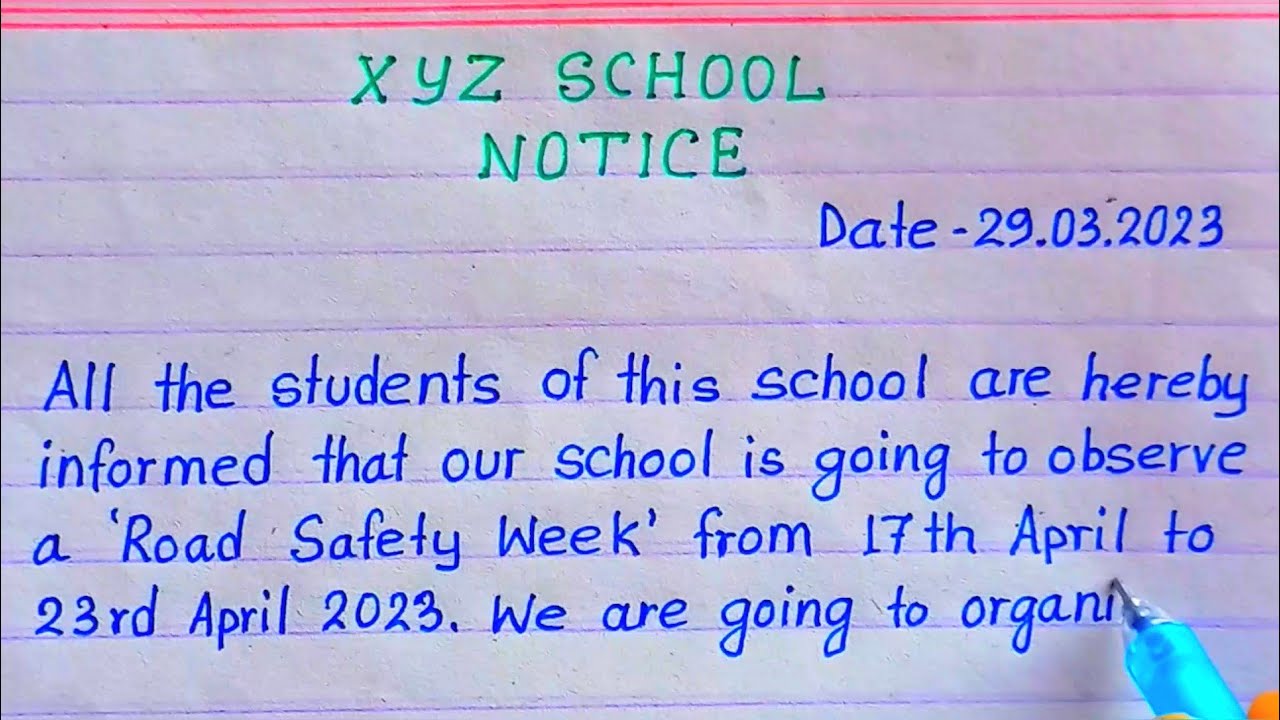 XYZ SCHOOL
NOTICE
Date - 29.03.2023
All the students of this school are hereby
informed that our school is going to observe
a 'Road Safety Week' from 17th April to
23rd April 2023. We are going to organi